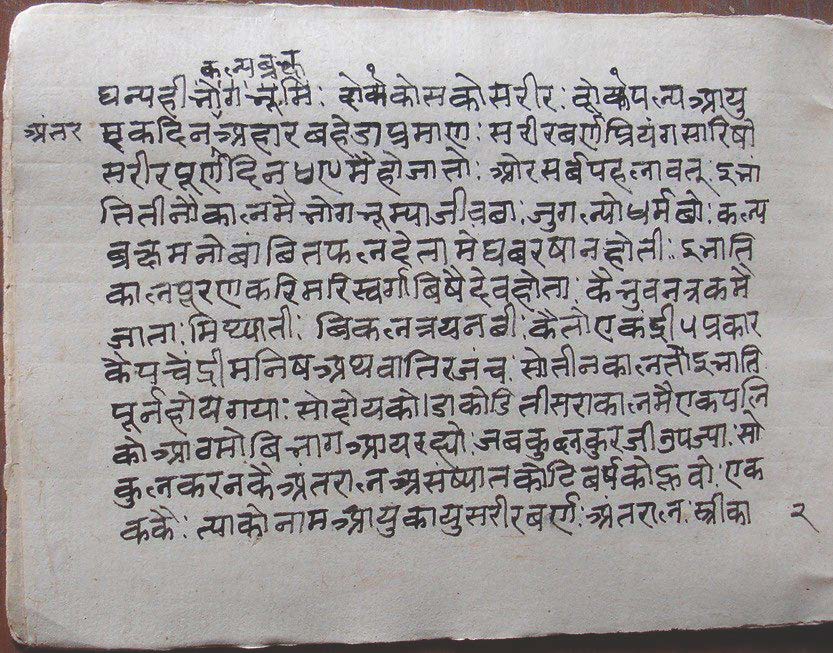 कल्पब्रक्ष
घन्यही भोगभूमि: दोयकोसकोसरीर: दोयपल्यआयु
अंतर एकदिनअहारबहेडाप्रमाण: सरीरबर्णप्रियंगसारिषो
सरीरपूर्णदिन ४९ मैहोजातो: ओरसर्बपहलावत्: इभां
तितीनौकालमैभोगभूम्याजीवबा: जुगल्योधर्मबो: कल्प
ब्रक्षमनोबांछितफलदेतामेघबरषानहोती: इभाति
कालपूरणकरिमरिस्वर्गाबिषैदेवहोता: कैभुवनत्रकमै
जाता: मिथ्याती: बिकलत्रयनबी: कैतोएकंद्री ५ प्रकार
कैपचेंद्रीमनिषअथवातिरजंच: सोतीनकालतौइभाति
पूर्नहोयगया: सोहोयकोडाकोडितीसराकालमैएकपलि
कोआवमोबिभागआयरह्यो: जबकुलकुरजीउपज्या: सो
कुलकरनकैअंतरालअसंष्यातकोटिबर्षकोहुवो: एक
ककै: त्याकोनामआयुकायुसरीरबर्ण: अंतराल: स्त्रीका २